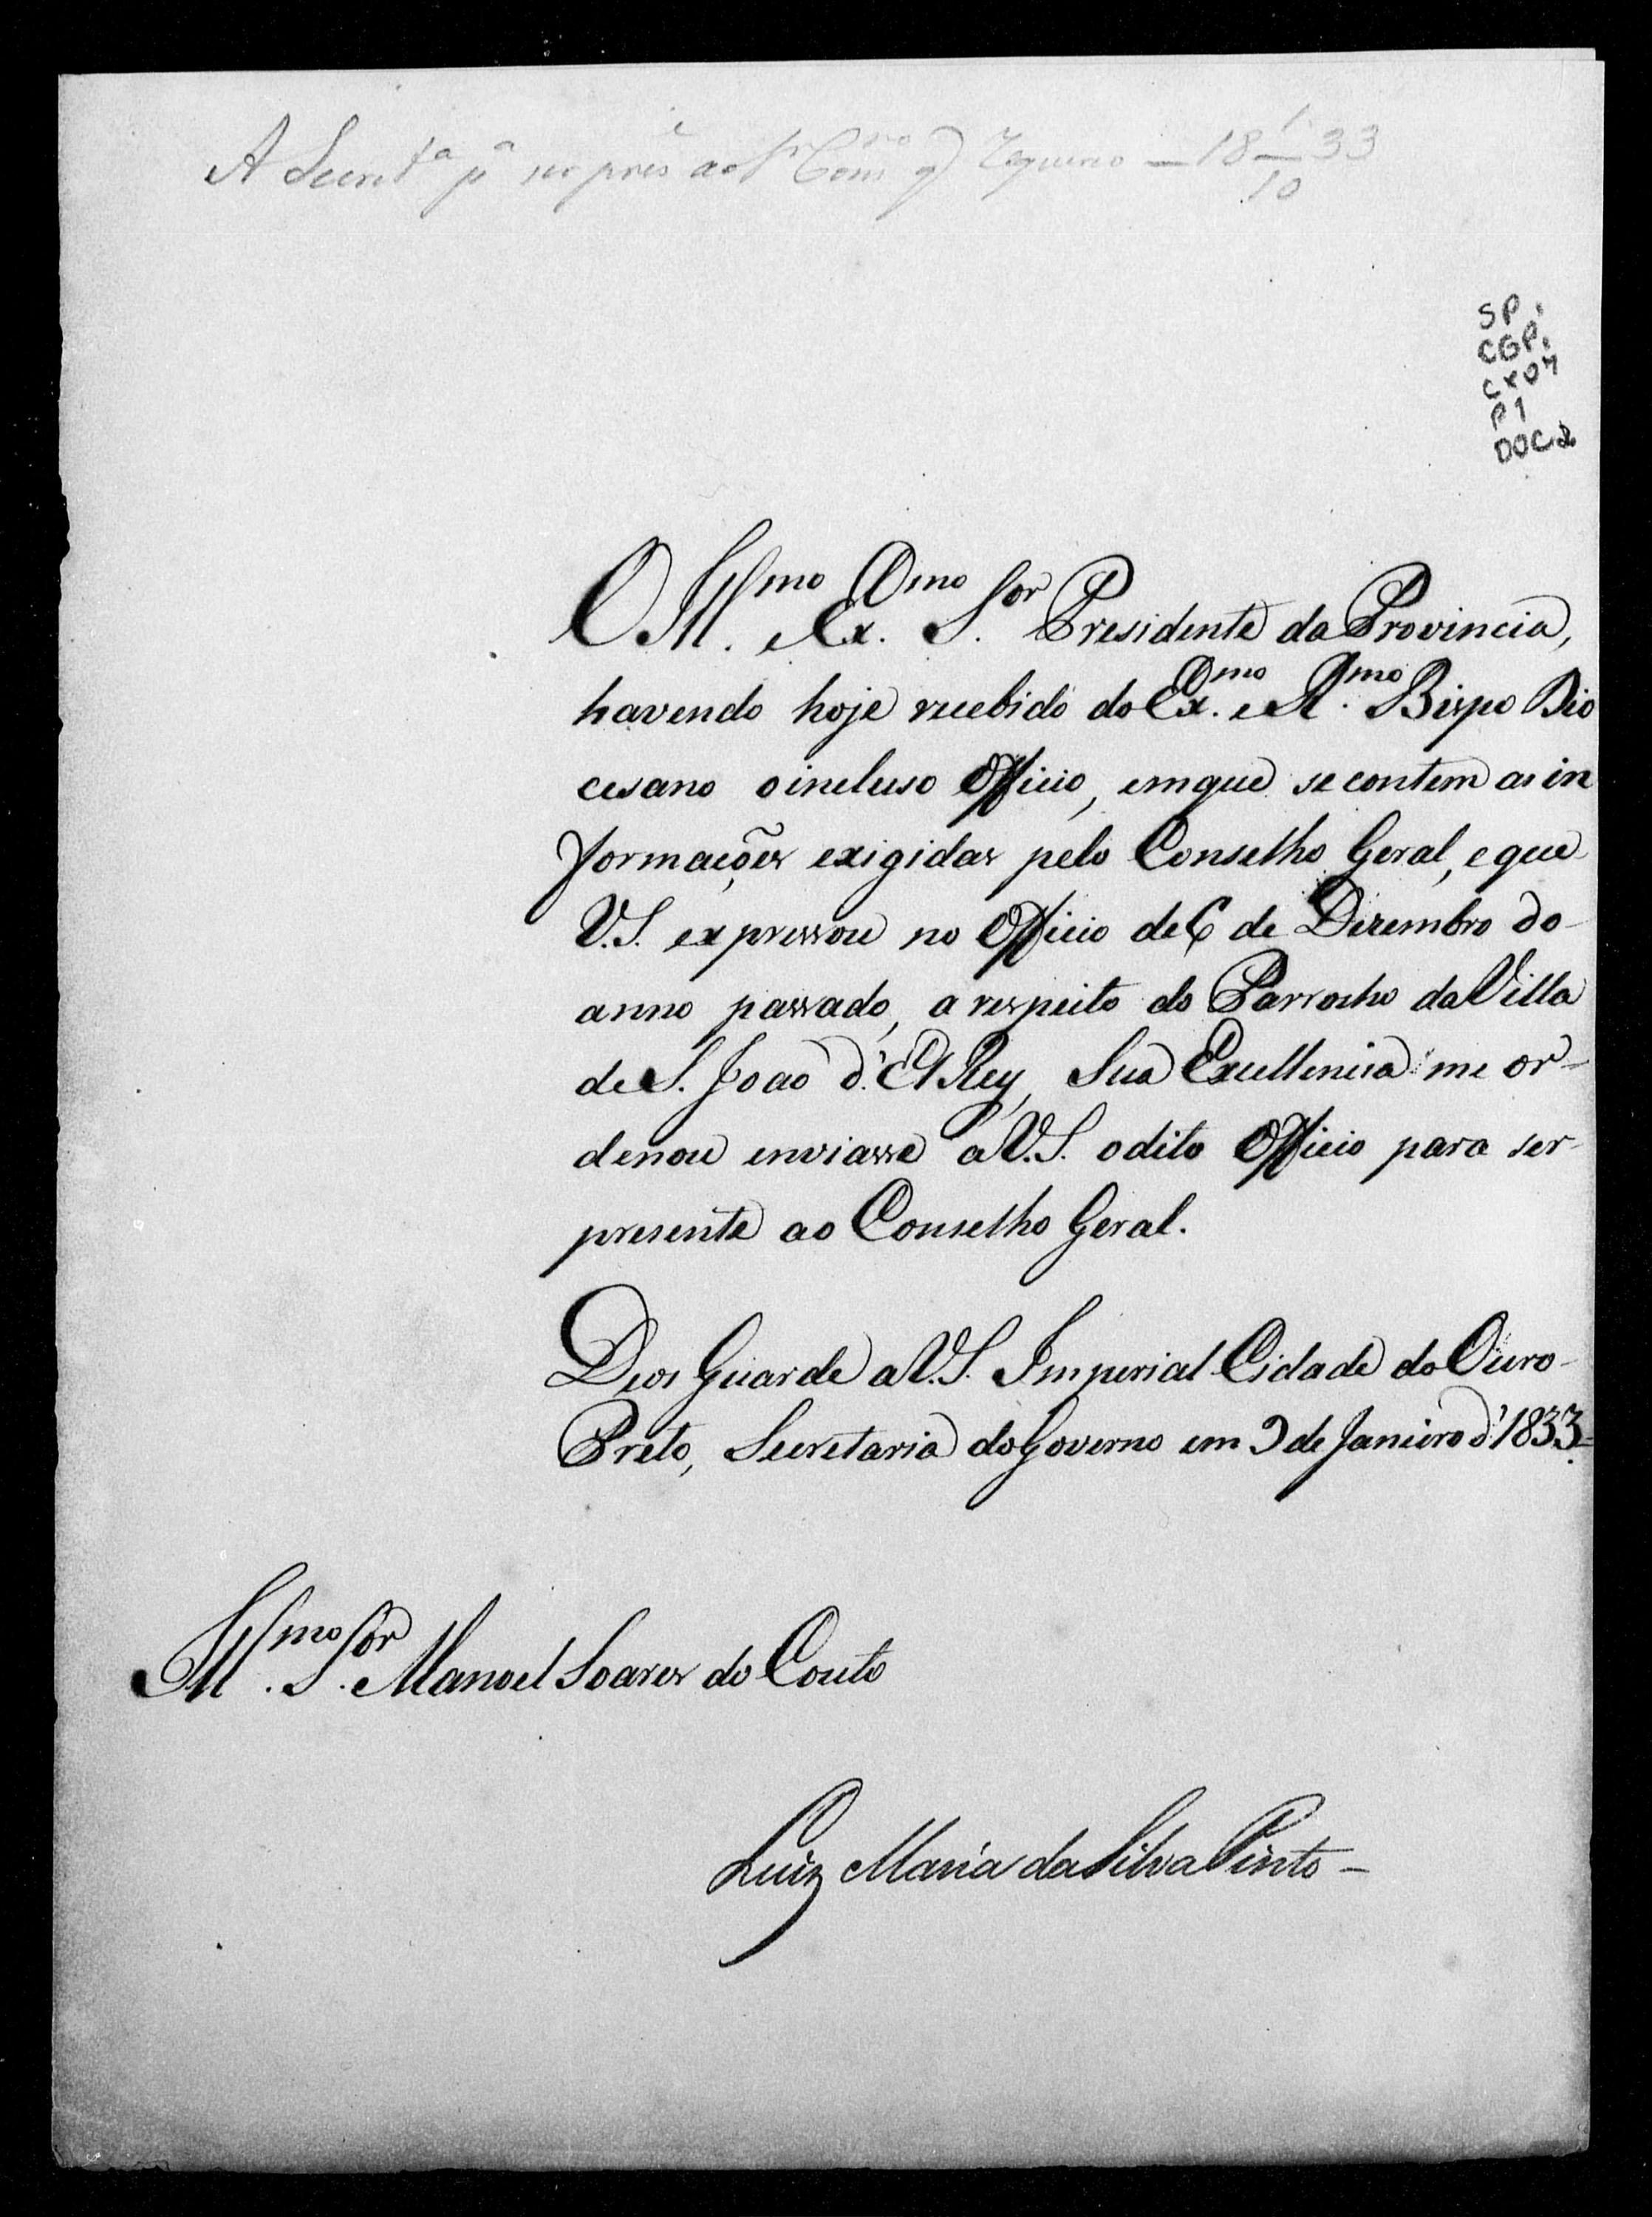 A Secret.ª p.ª ser pres.e ao Sr Cons.ro q̃ requereo — 18 1/10 33
SP.
CGP.
CX07
P1
DOC.2
O Ill.mo e Ex.mo S.or Presidente da Provincia,
havendo hoje recebido do Ex.mo e R.mo Bispo Dio
cesano o incluso Officio, em que se contem as in
formações exigidas pelo Conselho Geral, e que
V.S. expressou no Officio de 6 de Dezembro do
anno passado, a respeito do Parrocho da Villa
de S. João d'El Rey, Sua Excellencia me or-
denou enviasse a V.S. o dito Officio para ser
presente ao Conselho Geral.
Deos Guarde a V.S. Imperial Cidade do Ouro-
Preto, Secretaria do Governo em 9 de Janeiro d'1833=
Ill.mo S.or Manoel Soares do Couto
Luiz Maria da Silva Pinto –